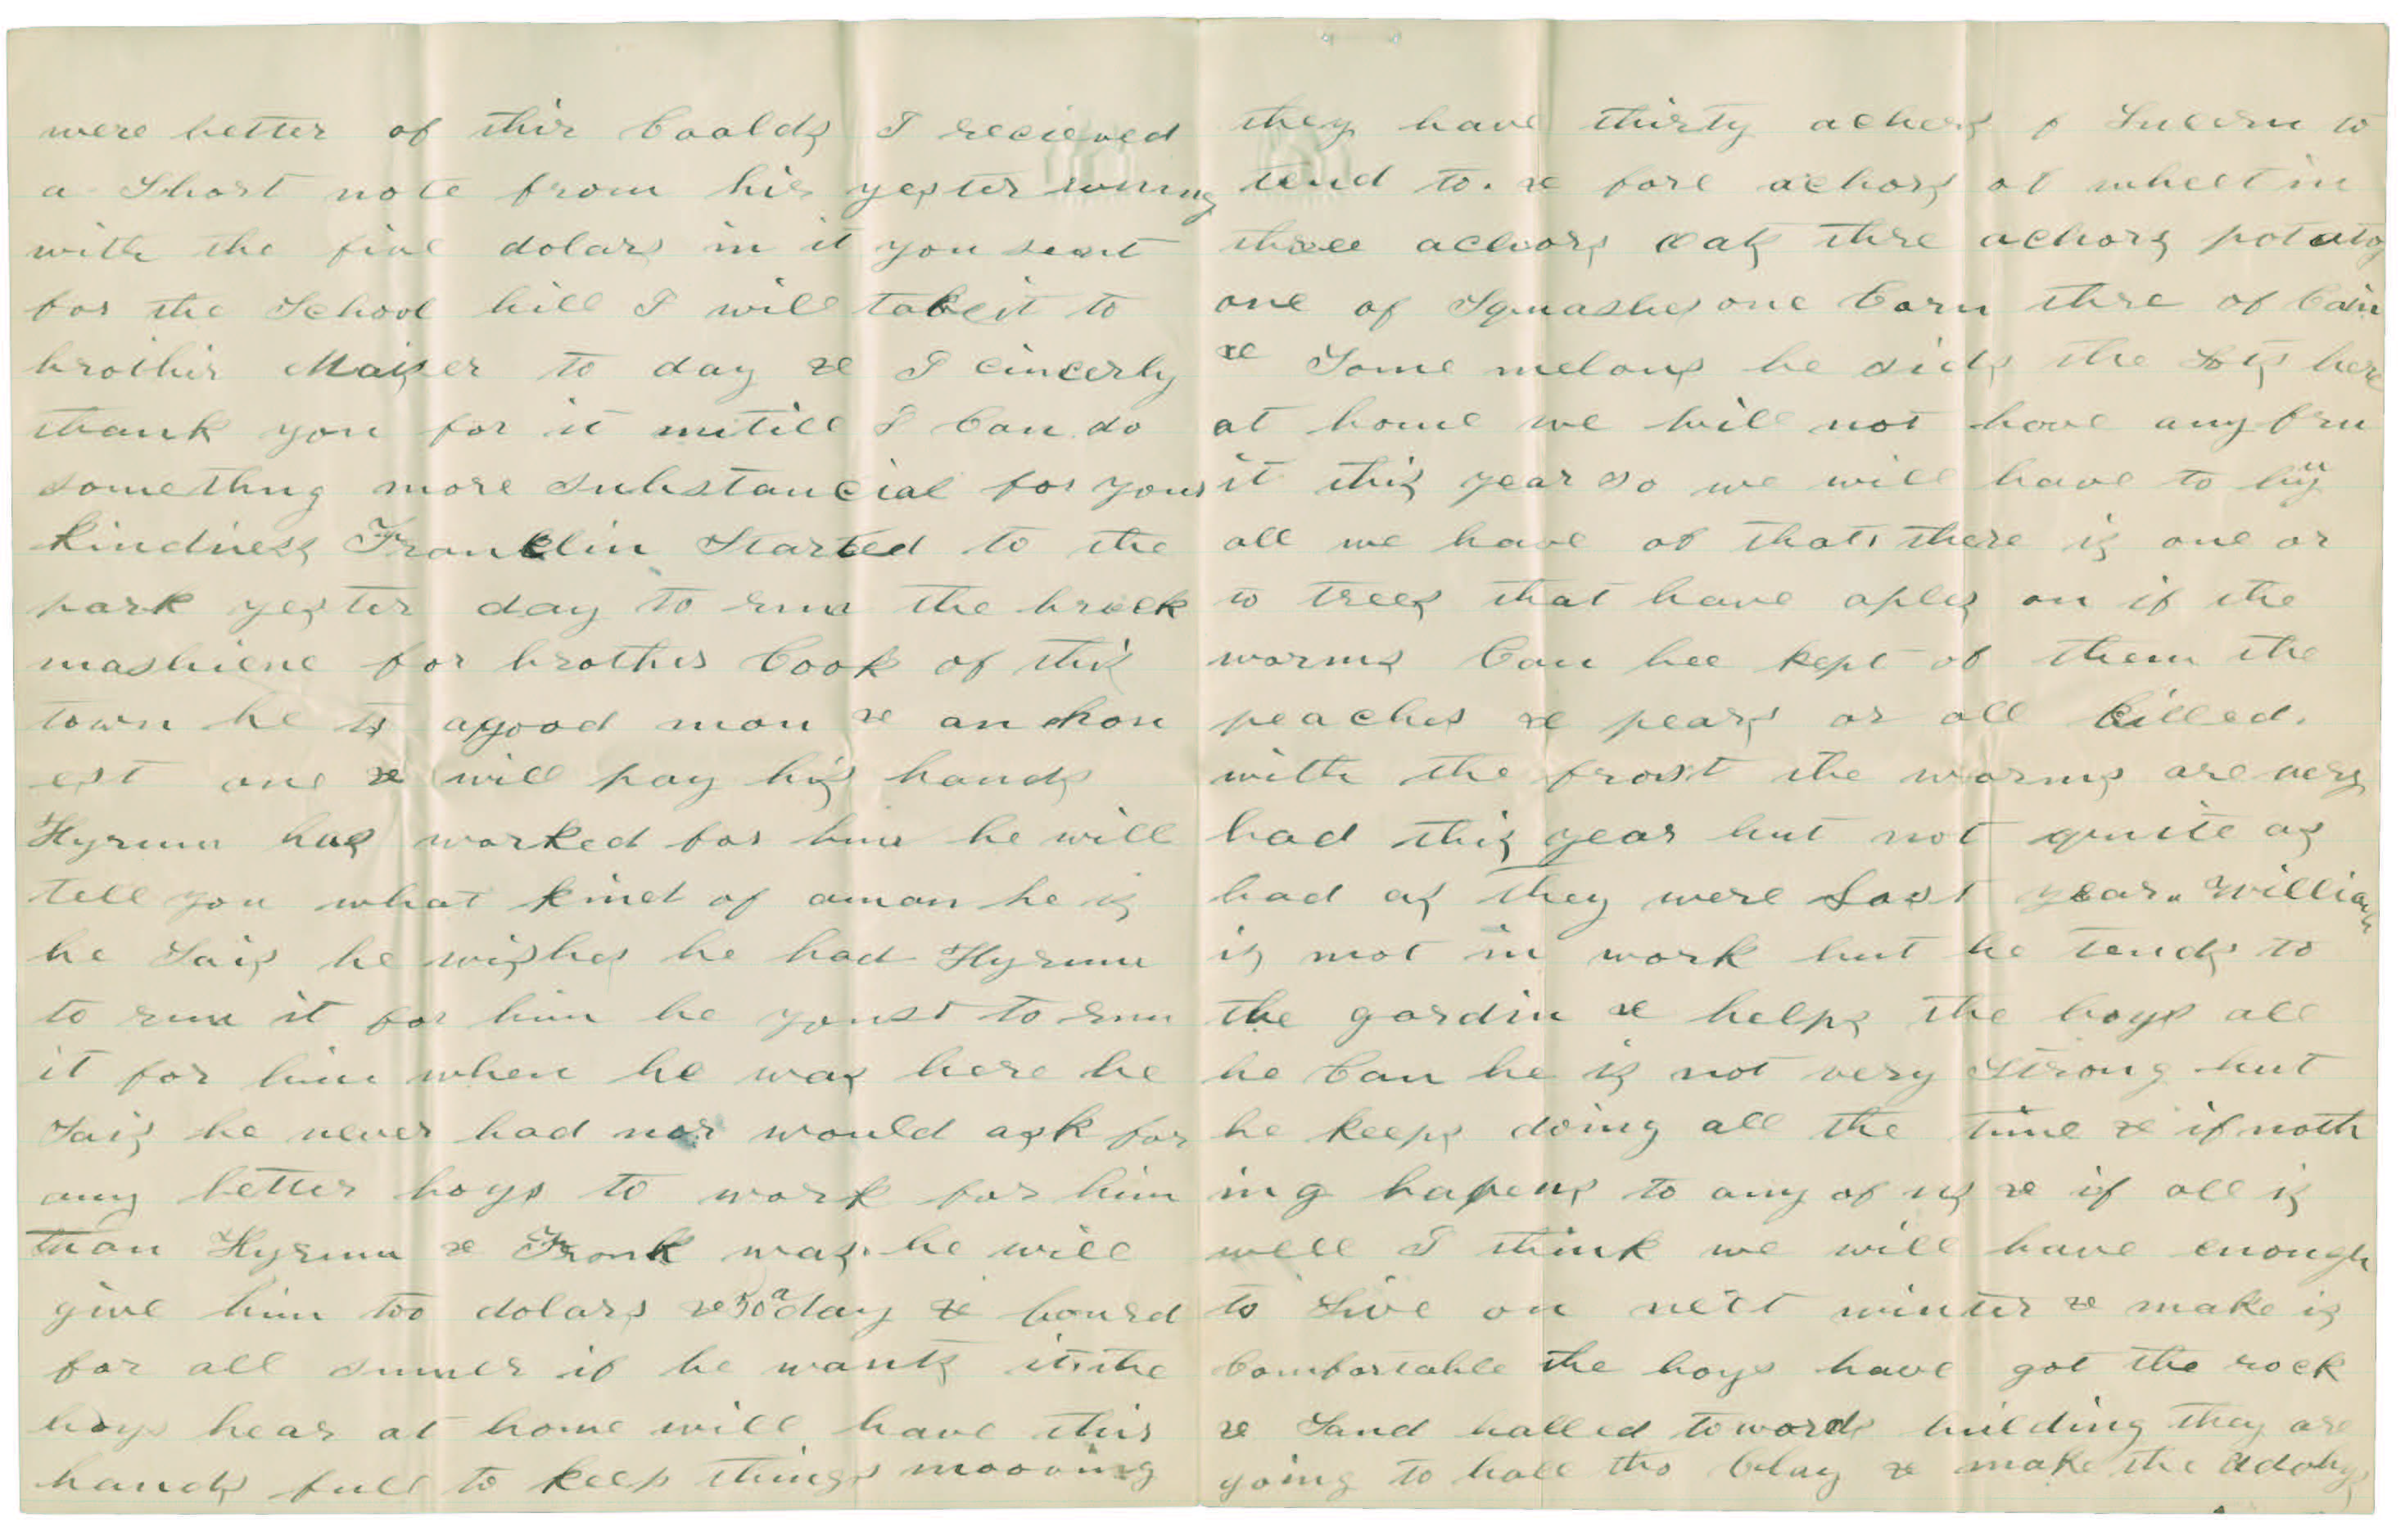 were better of thir Coalds I recieved
a Short note from hir yester
with the five dolars in it you sent
for the School bill I will take it to
brother Maiser to day & I cincerly
thank you for it untill I Can do
something more substancial for your
kindness Franklin Started to the
park yester day to run the brick
mashiene for brother Cook of this
town he is a good man & an hon
est one & will pay his hands
Hyrum has worked for him he will
tell you what kind of a man he is
he Sais he wishes he had Hyrum
to run it for him he youst to run
it for him when he was here he
Sais he never had nor would ask for
any better boys to work for him
than Hyrum & Frank was. he will
give him too dolars & 50 a day & bourd
for all sumer if he wants it. the
boys hear at home will have thir
hands full to keep things mooving
they have thirty achors of Lucern to
tend to. & fore achors of wheet in
three achors oats thre achors potatos
one of Squashes one Corn thre of Cain
& Some melons be sids the Lots here
at home we will not have any fru
it this year so we will have to by
all we have of that. there is one or
to trees that have aples on if the
worms Can bee kept of them the
peaches & pears or all killed.
with the frost the worms are very
bad this year but not quite as
bad as they were Last year. William
is not in work but he tends to
the gardin & helps the boys all
he Can he is not very Strong but
he keeps doing all the time & if noth
ing hapens to any of us & if all is
well I think we will have enough
to Live on next winter & make is
Comfortable the boys have got the rock
& Sand halled towords building they are
going to hall the Clay & make the adobys